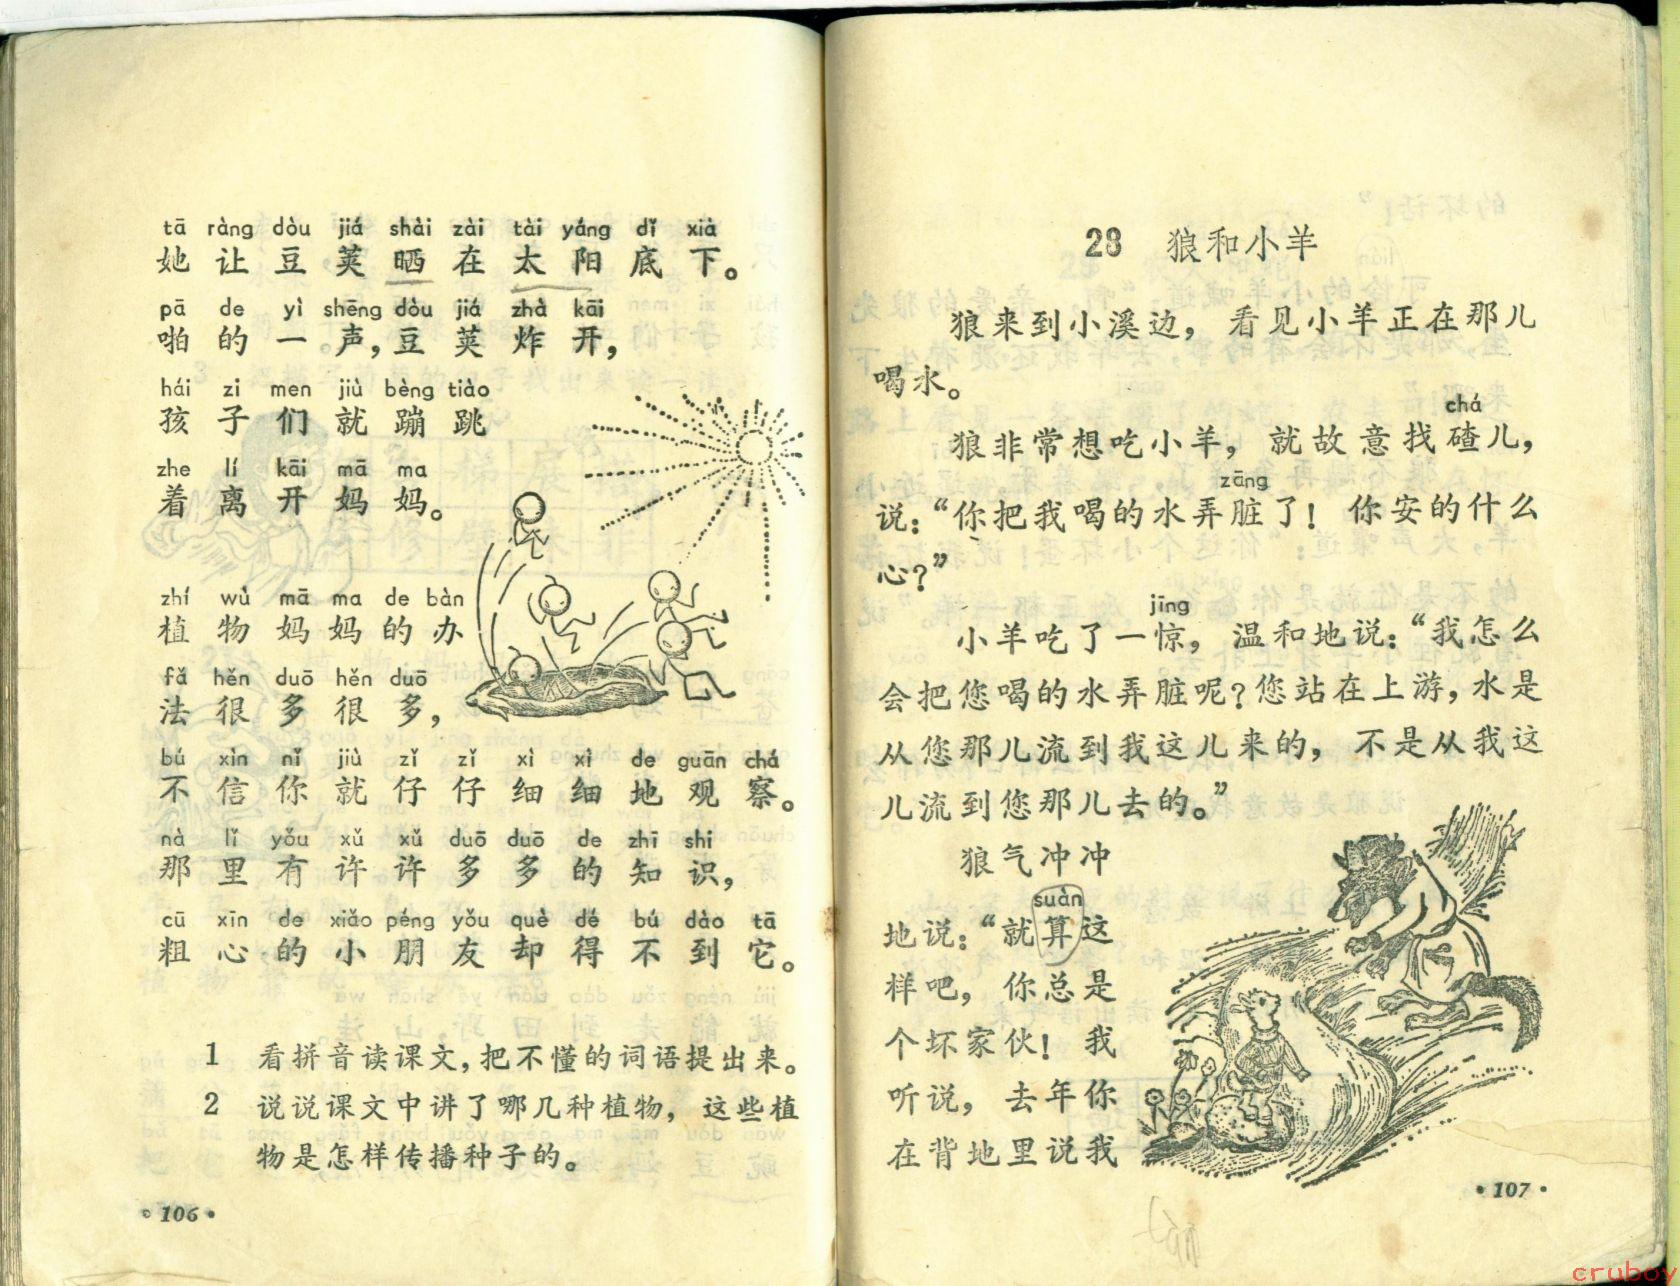 tā ràng dòu jiá shài zài tài yáng dǐ xià
她让豆荚晒在太阳底下。
pā de yì shēng dòu jiá zhà kāi
啪的一声，豆荚炸开，
hái zi men jiù bèng tiào
孩子们就蹦跳
zhe lí kāi mā ma
着离开妈妈。
zhí wù mā ma de bàn
植物妈妈的办
fǎ hěn duō hěn duō
法很多很多，
bú xìn nǐ jiù zǐ zǐ xì xì de guān chá
不信你就仔仔细细地观察。
nà lǐ yǒu xǔ xǔ duō duō de zhī shi
那里有许许多多的知识，
cū xīn de xiǎo péng yǒu què dé bú dào tā
粗心的小朋友却得不到它。
1 看拼音读课文，把不懂的词语提出来。
2 说说课文中讲了哪几种植物，这些植
物是怎样传播种子的。
·106·
28 狼和小羊
狼来到小溪边，看见小羊正在那儿
喝水。
chá
狼非常想吃小羊，就故意找碴儿，
zāng
说：“你把我喝的水弄脏了！你安的什么
心？”
jīng
小羊吃了一惊，温和地说：“我怎么
会把您喝的水弄脏呢？您站在上游，水是
从您那儿流到我这儿来的，不是从我这
儿流到您那儿去的。”
狼气冲冲
suàn
地说：“就算这
样吧，你总是
个坏家伙！我
听说，去年你
在背地里说我
·107·
cruboy